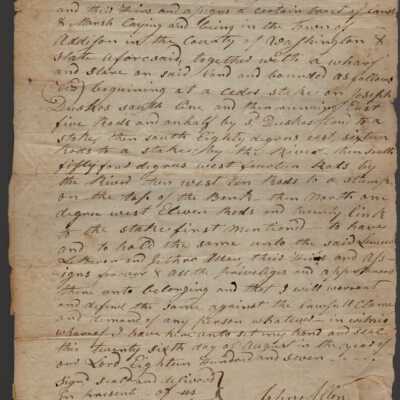 and their Heirs and assigns a certain tract of Land
& Marsh Laying and being in the town of
Addison in the County of Washington &
State aforesaid, together with a wharf
and Store on said Land and bounded as follows
(Viz) beginning at a cedor stake on Joseph
south line and then running East
five Rods and an half by line to a
stake, then south Eighty degrees east sixteen
Rods to a stake by the River then south
fifty four degrees west fourteen Rods by
the River then west ten Rods to a stump
on the top of the Bank then North one
degree west Eleven Rods and twenty link
to the stake first mentiond to have
and to hold the same unto the said Lemuel
and Joshua their Heirs and Ass
signs forever & all the priviliges and
there unto belonging and that I will warrant
and defend the same against the Lawful Claims
and demand of any person whatever in witness
whareof I have here unto set my hand and seal
this twenty sixth day of August in the year of
our Lord Eighteen hundred and seven
Signd seald and deliverd
in presents of us
John